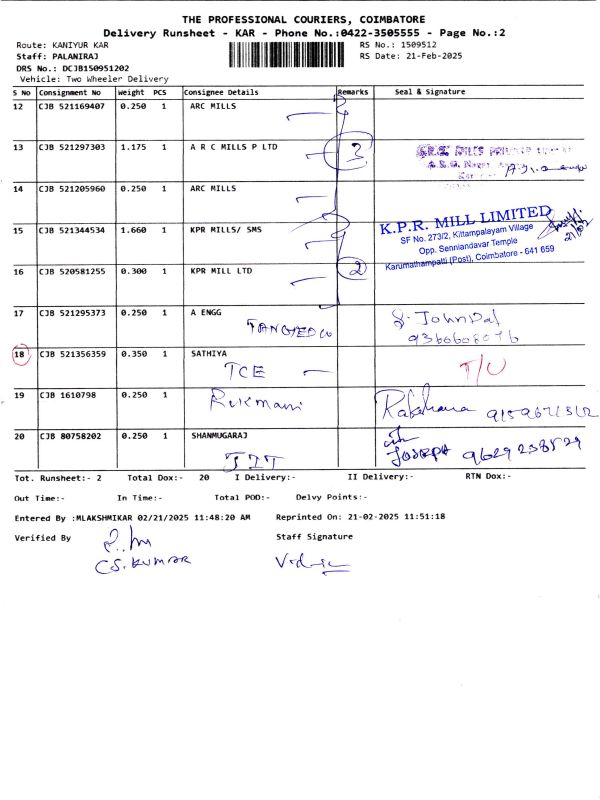 THE PROFESSIONAL COURIERS, COIMBATORE
Delivery Runsheet - KAR - Phone No.:0422-3505555 - Page No.:2
Route: KANIYUR KAR RS No.: 1509512
Staff: PALANIRAJ RS Date: 21-Feb-2025
DRS No.: DCJB150951202
Vehicle: Two Wheeler Delivery
S No Consignment No Weight PCS Consignee Details Remarks Seal & Signature
12 CJB 521169407 0.250 1 ARC MILLS
13 CJB 521297303 1.175 1 A R C MILLS P LTD 3
14 CJB 521205960 0.250 1 ARC MILLS
15 CJB 521344534 1.660 1 KPR MILLS/ SMS
K.P.R. MILL LIMITED
SF No. 273/2, Kittampalayam Village
Opp. Senniandavar Temple
Karumathampatti (Post), Coimbatore - 641 659
16 CJB 520581255 0.300 1 KPR MILL LTD 2
17 CJB 521295373 0.250 1 A ENGG
TANGEDCO
18 CJB 521356359 0.350 1 SATHIYA T/U
TCE
19 CJB 1610798 0.250 1 Rukmani
20 CJB 80758202 0.250 1 SHANMUGARAJ
JOSEPH 9629238529
Tot. Runsheet:- 2 Total Dox:- 20 I Delivery:- II Delivery:- RTN Dox:-
Out Time:- In Time:- Total POD:- Delvy Points:-
Entered By :MLAKSHMIKAR 02/21/2025 11:48:20 AM Reprinted On: 21-02-2025 11:51:18
Verified By Staff Signature
C.S.KUMAR